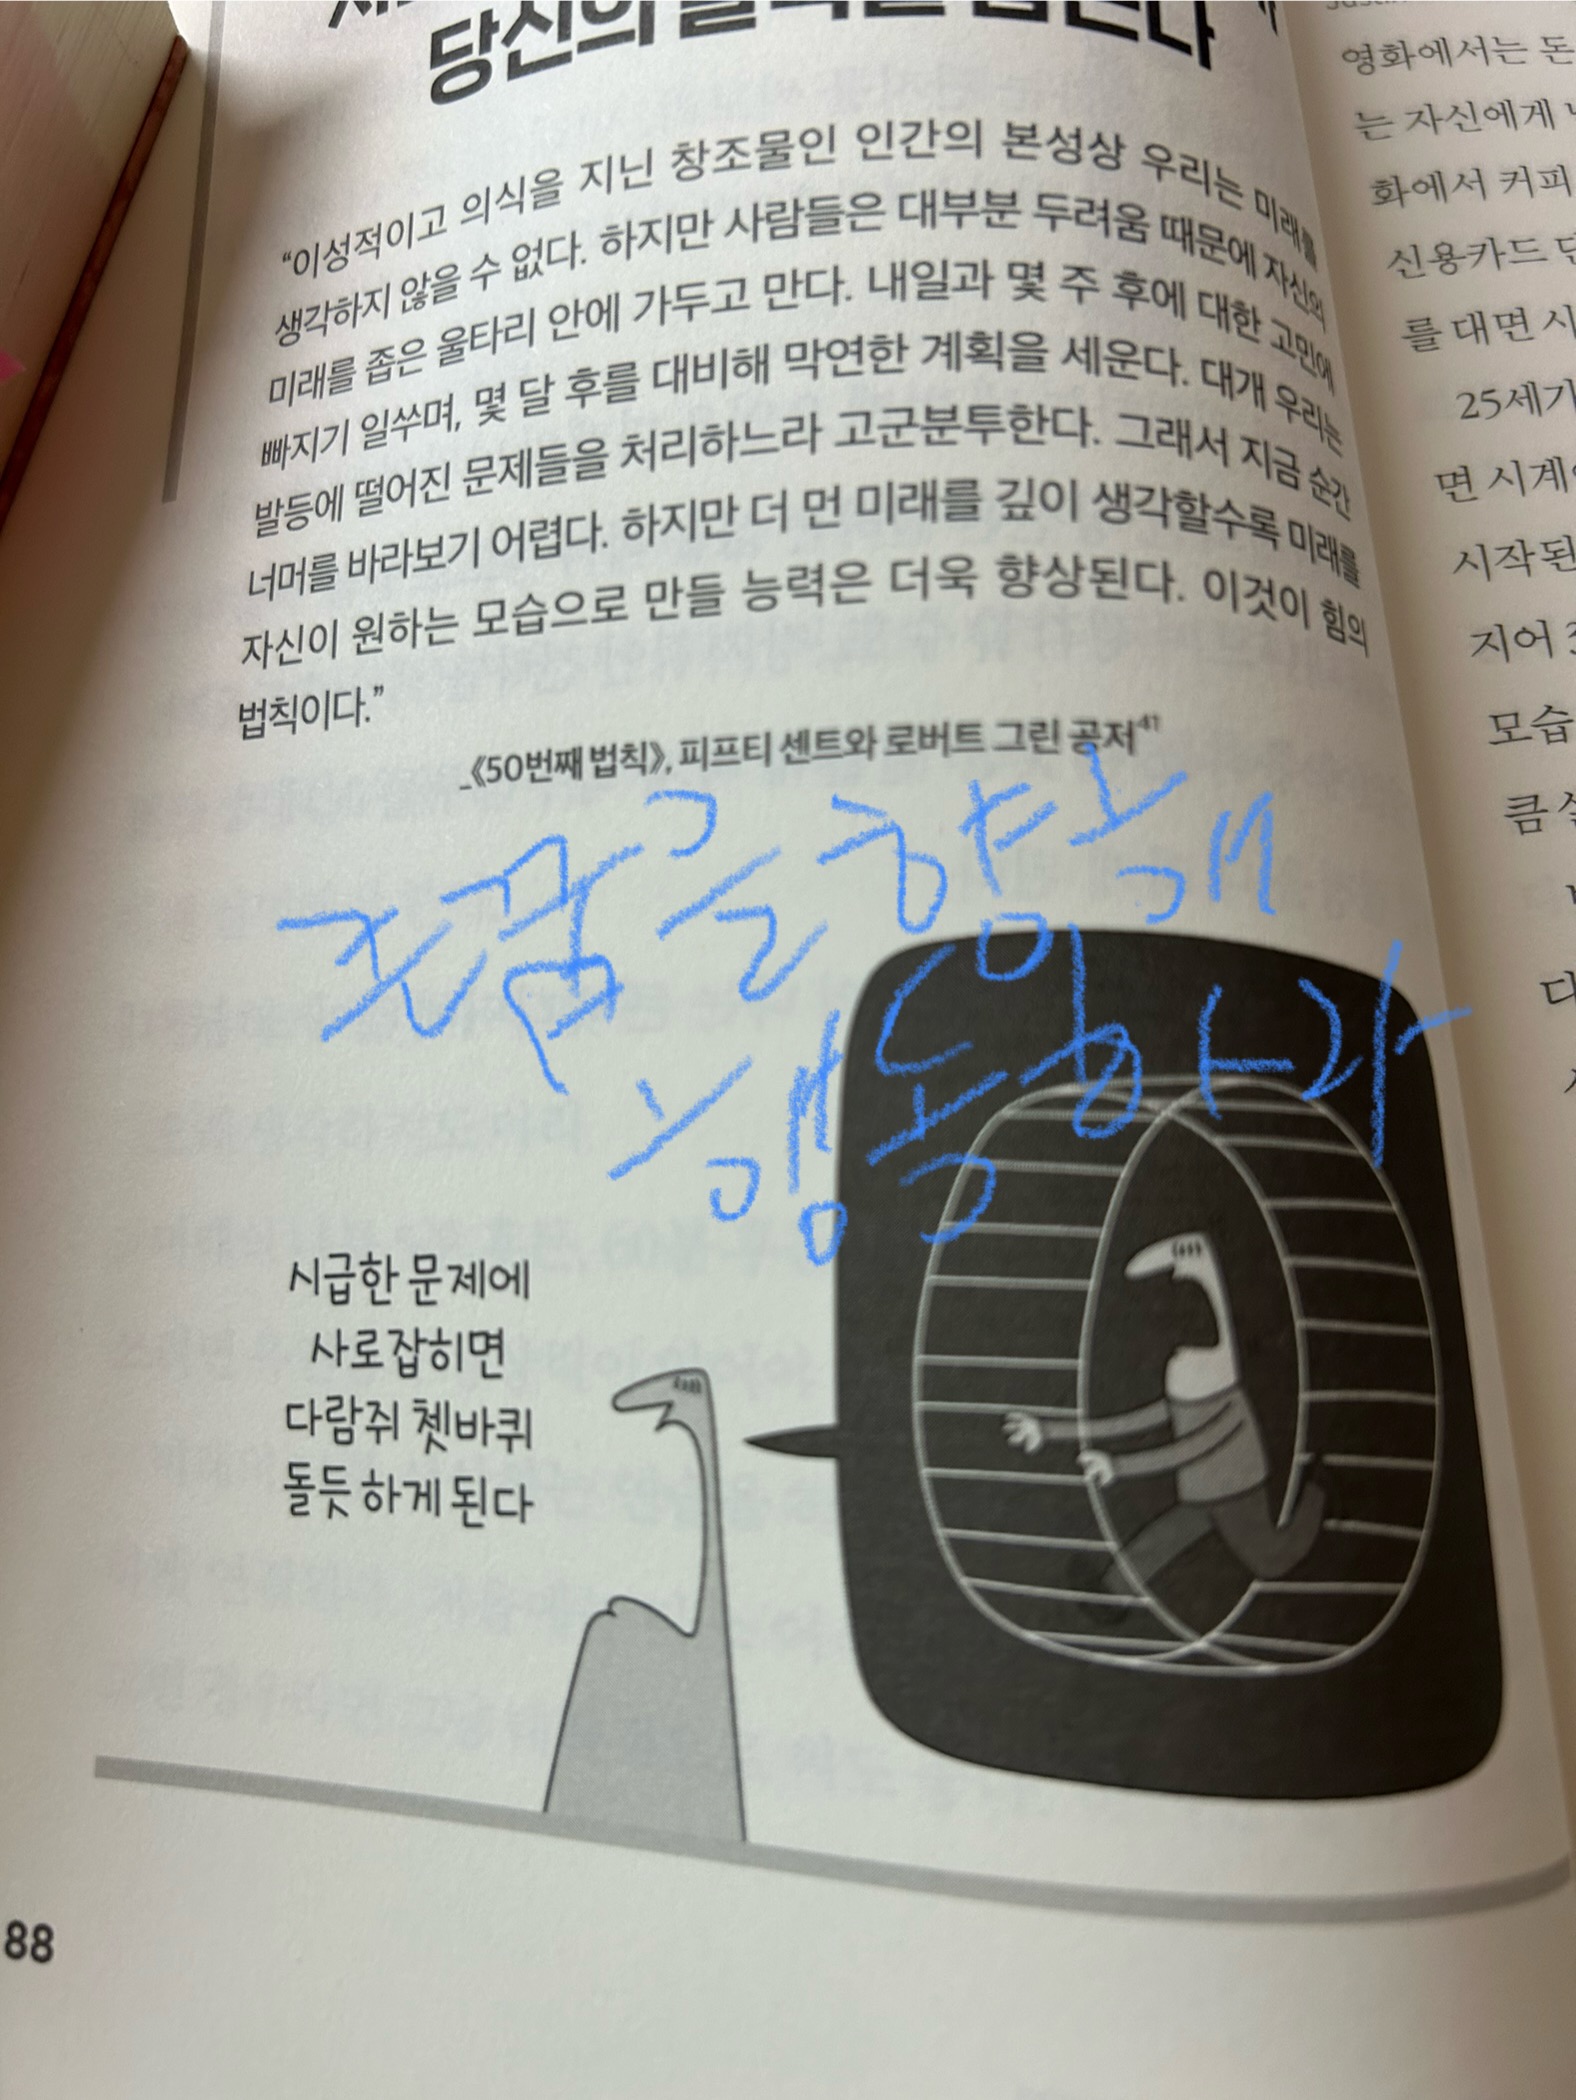 당신의
“이성적이고 의식을 지닌 창조물인 인간의 본성상 우리는 미래를
생각하지 않을 수 없다. 하지만 사람들은 대부분 두려움 때문에 자신의
미래를 좁은 울타리 안에 가두고 만다. 내일과 몇 주 후에 대한 고민에
빠지기 일쑤며, 몇 달 후를 대비해 막연한 계획을 세운다. 대개 우리는
발등에 떨어진 문제들을 처리하느라 고군분투한다. 그래서 지금 순간
너머를 바라보기 어렵다. 하지만 더 먼 미래를 깊이 생각할수록 미래를
자신이 원하는 모습으로 만들 능력은 더욱 향상된다. 이것이 힘의
법칙이다.”
_《50번째 법칙》, 피프티 센트와 로버트 그린 공저41
꿈을 향해
행동하라
시급한 문제에
사로잡히면
다람쥐 쳇바퀴
돌듯 하게 된다
88
영화에서는 돈
는 자신에게
화에서 커피
신용카드
를 대면 시
25세기
면 시계
시작된
지어
모습
큼